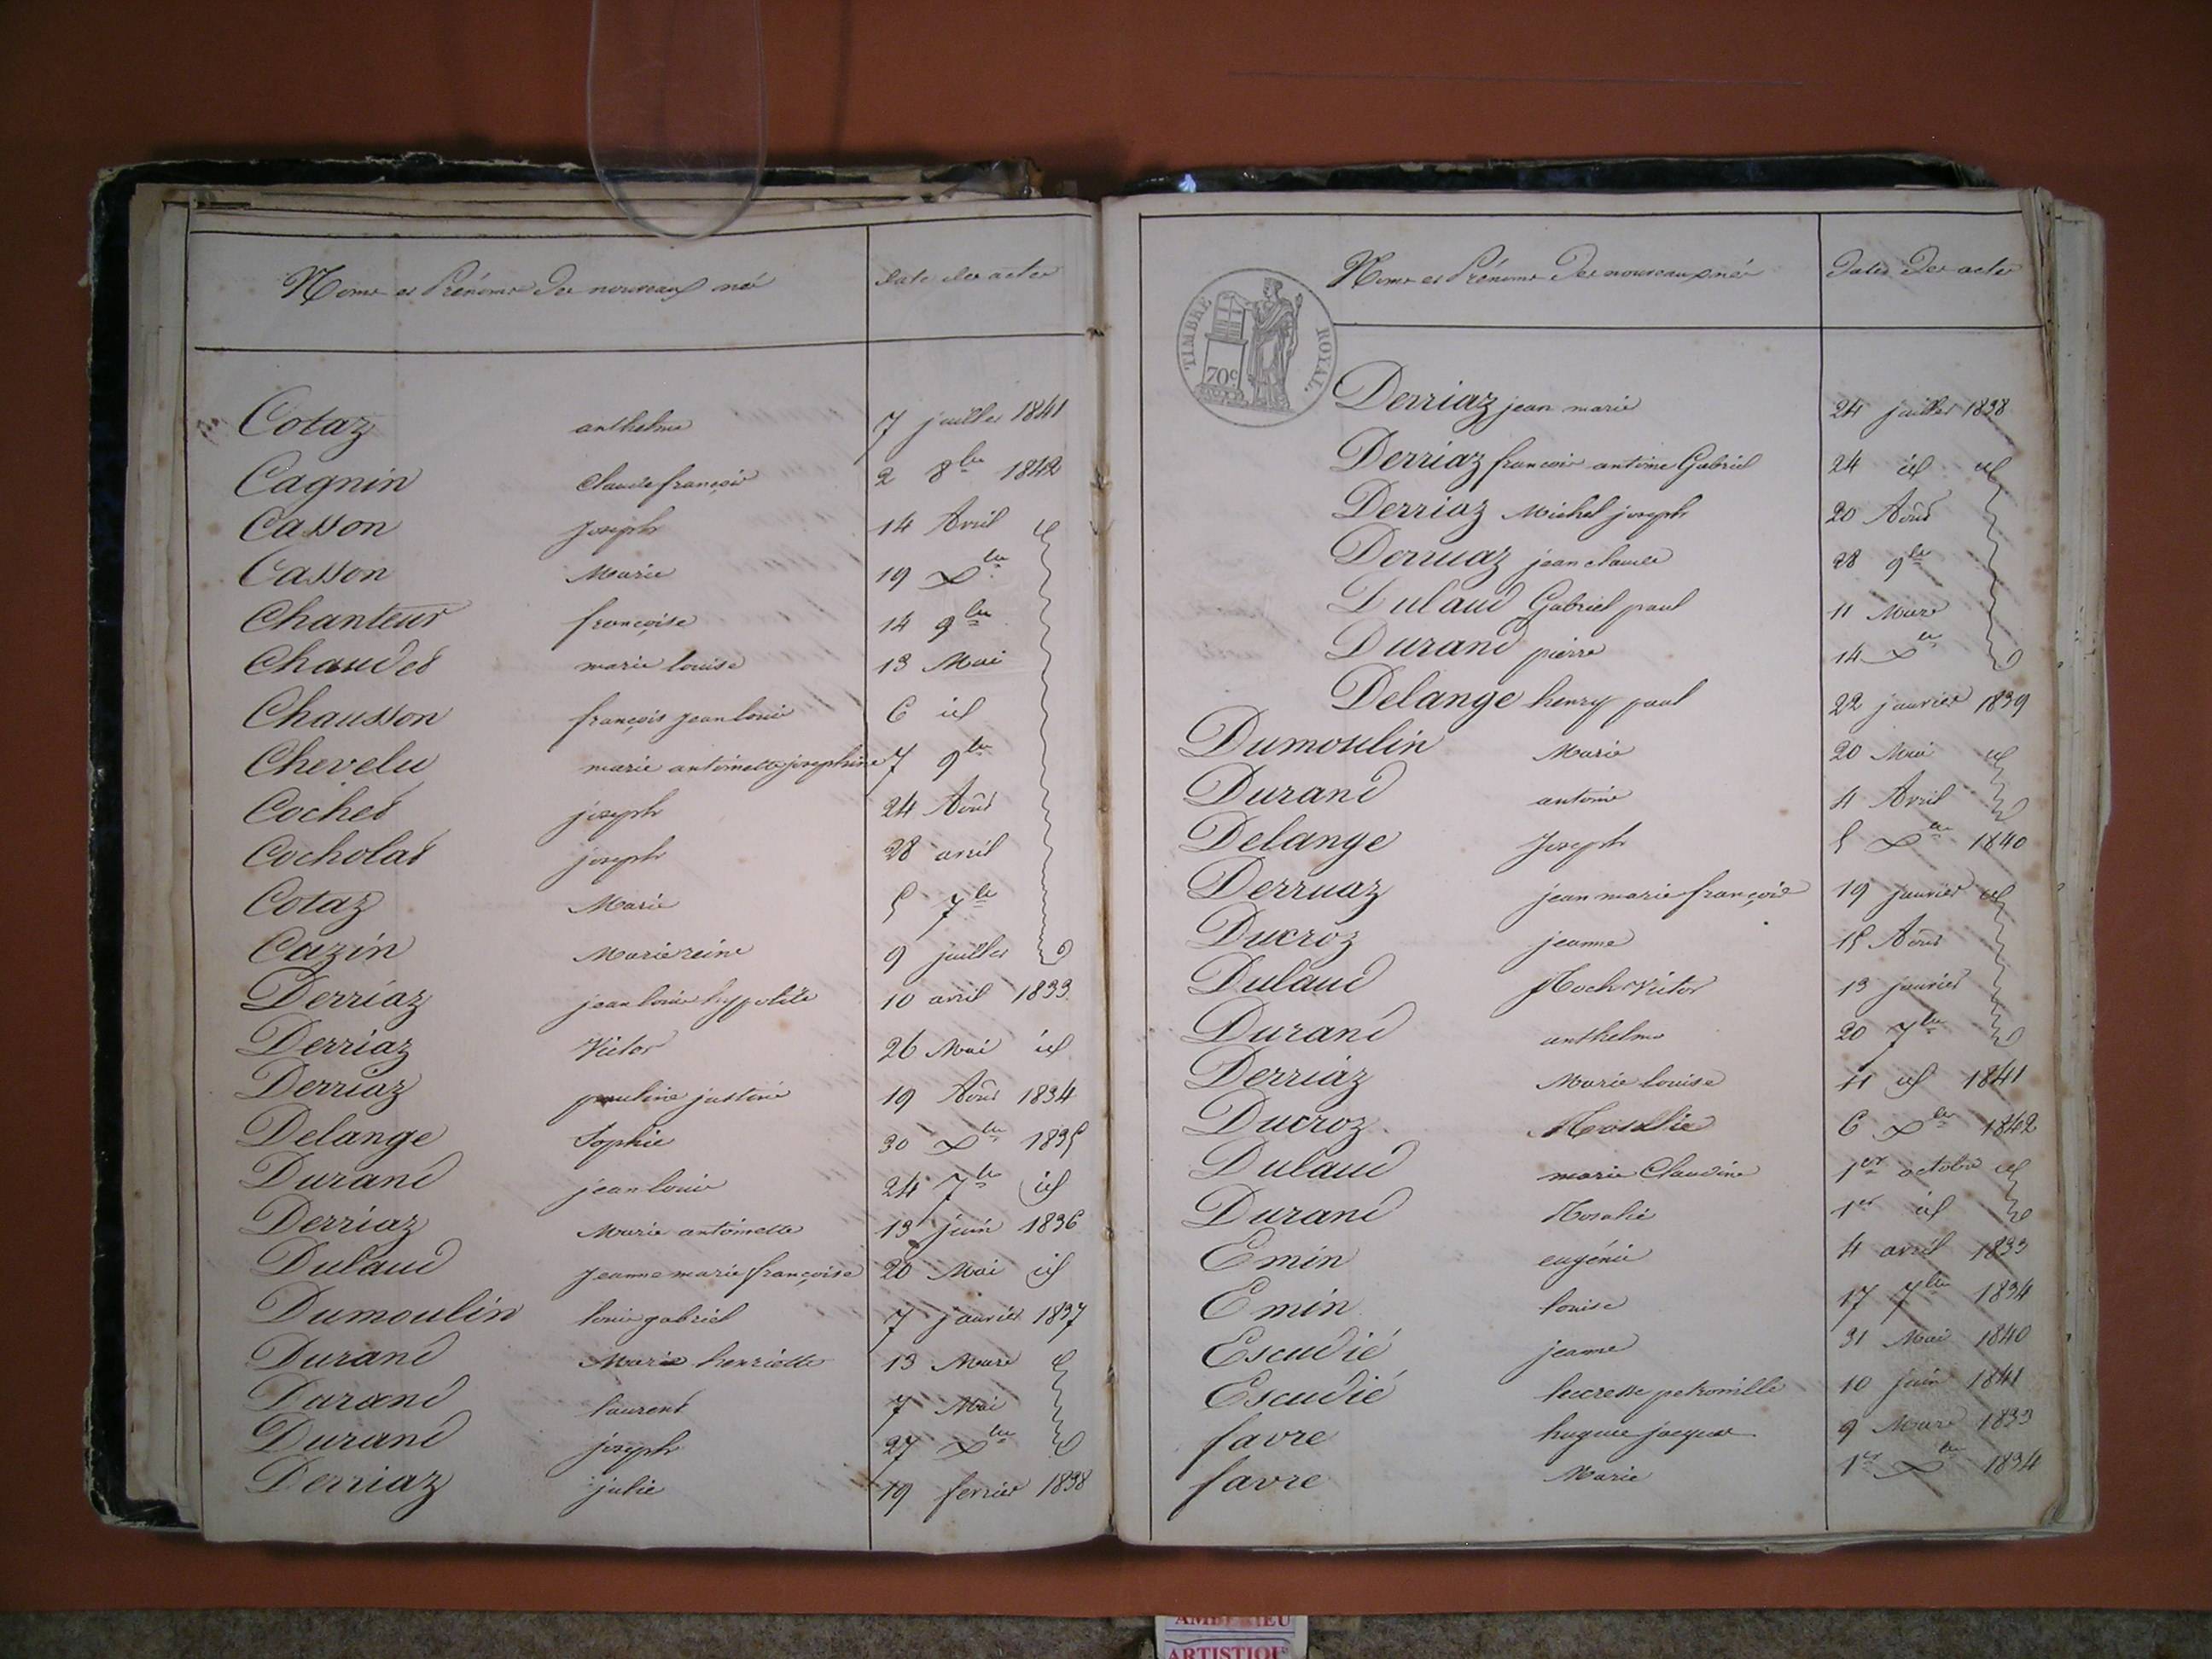 Noms et Prénoms des nouveaux nés date des actes
Cotaz anthelme 7 juillet 1841
Cagnin Claude françois 2 8bre 1842
Casson Joseph 14 Avril id
Casson Marie 19 Xbre
Chanteur françoise 14 9bre
Chaudet marie louise 13 Mai
Chausson françois jean louis 6 id
Chevelu marie antoinette josephine 7 9bre
Cochet joseph 24 Août
Cocholat joseph 28 avril
Cotaz Marie 5 7bre
Cazin Marie reine 9 juillet
Derriaz jean louis hypolite 10 avril 1833
Derriaz Victor 26 Mai id
Derriaz pauline justine 19 Août 1834
Delange Sophie 30 Xbre 1835
Durand jean louis 24 7bre id
Derriaz Marie antoinette 13 juin 1836
Dulaud Jeanne marie françoise 20 Mai id
Dumoulin louis gabriel 7 janvier 1837
Durand Marie henriette 13 Mars id
Durand laurent 7 Mai
Durand joseph 27 Xbre
Derriaz julie 19 fevrier 1838
Noms et Prénoms des nouveaux nés Dates des actes
TIMBRE ROYAL.
70c
Derriaz jean marie 24 juillet 1838
Derriaz francois antoine Gabriel 24 id id
Derriaz Michel joseph 20 Août
Derruaz jean claude 28 9bre
Dulaud Gabriel paul 11 Mars
Durand pierre 14 Xbre
Delange henry paul 22 janvier 1839
Dumoulin Marie 20 Mai id
Durand antoine 4 Avril
Delange Joseph 5 Xbre 1840
Derruaz jean marie françois 19 janvier id
Ducroz jeanne 15 Août
Dulaud Roch Victor 13 janvier
Durand anthelme 20 7bre
Derriaz Marie louise 11 id 1841
Ducroz Rosalie 6 Xbre 1842
Dulaud marie Claudine 1er octobre id
Durand Rosalie 1er id
Emin eugénie 4 avril 1833
Emin louise 17 7bre 1834
Escudié jeanne 31 Mai 1840
Escudié lucresse petronille 10 juin 1841
favre hugues jacques 9 Mars 1833
favre Marie 1er Xbre 1834
ARTISTIQUE